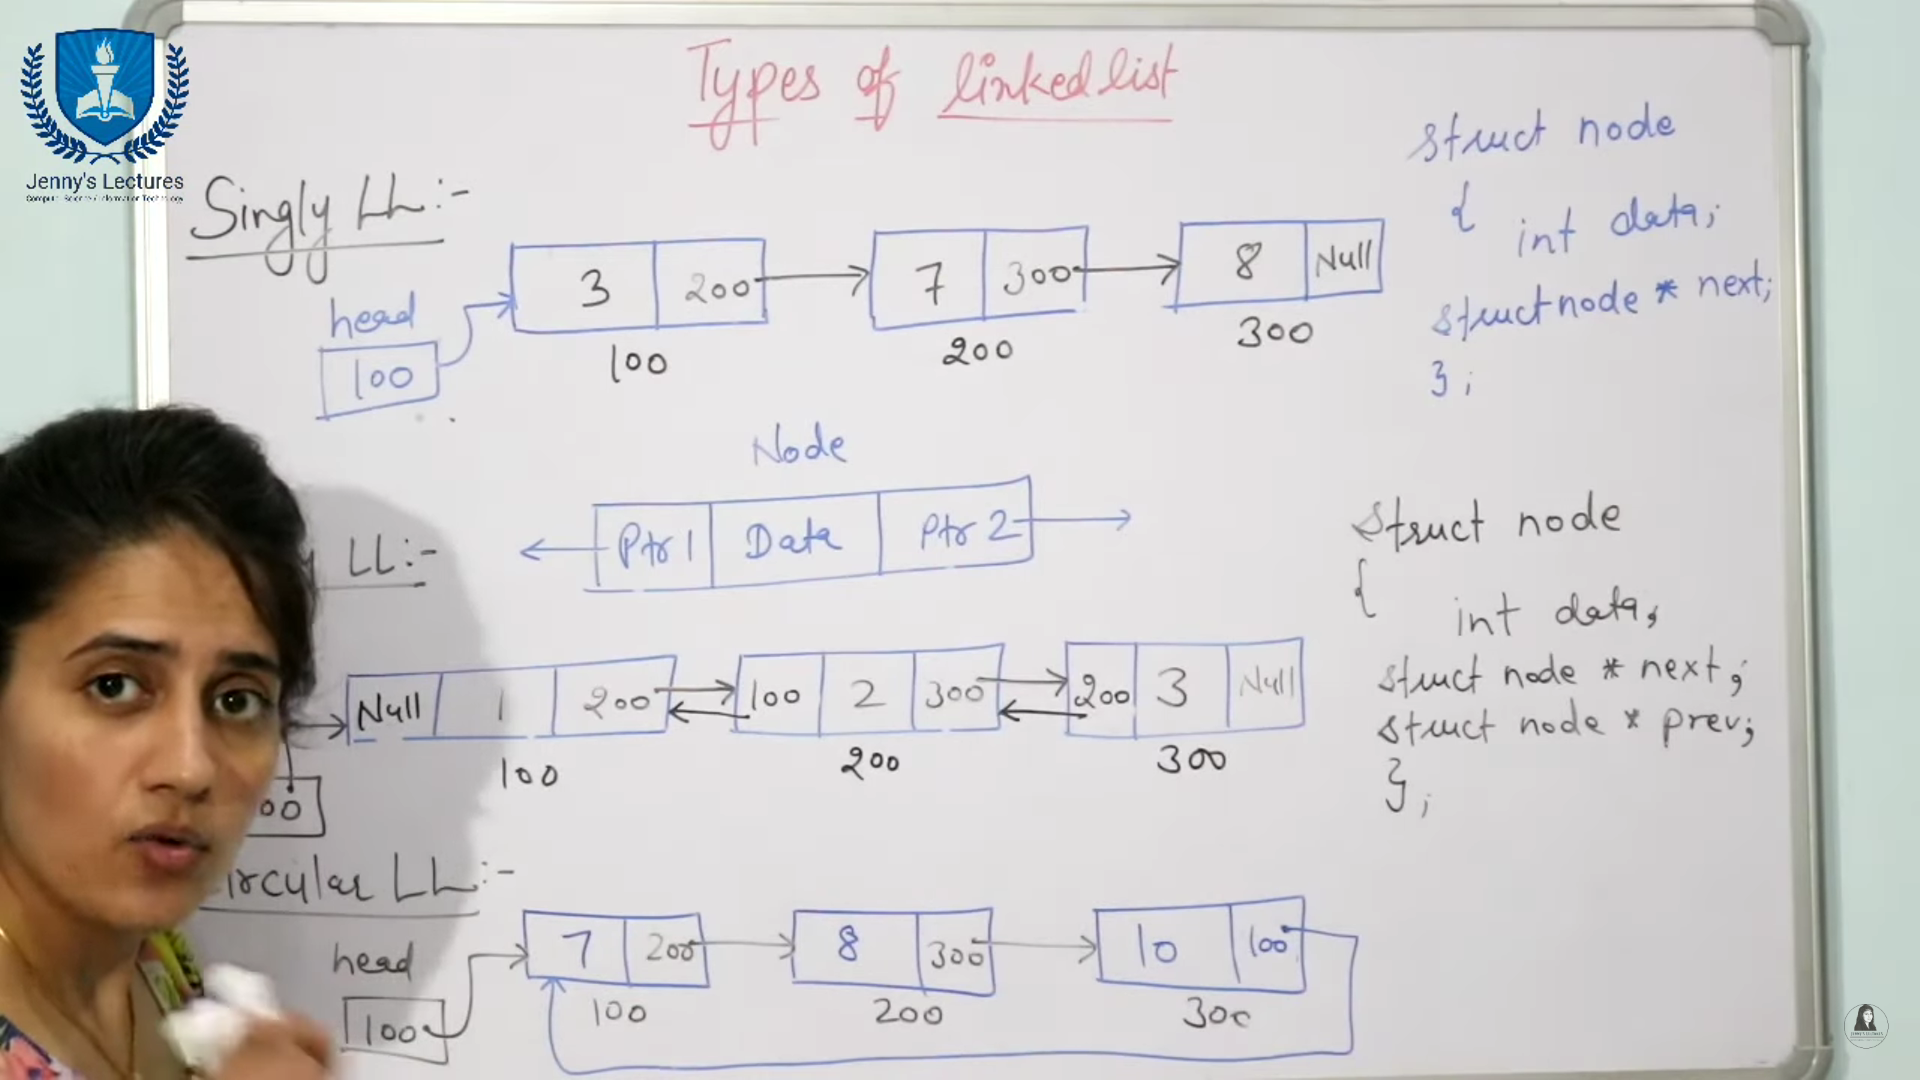 Jenny's Lectures
Computer Science / Information Technology
Types of linked list
Singly LL:-
head
100
3 200
100
7 300
200
8 Null
300
struct node
{ int data;
struct node * next;
};
Node
LL:-
Ptr1 Data Ptr2
Null 1 200
100
100 2 300
200
200 3 Null
300
00
struct node
{
int data;
struct node * next;
struct node * prev;
};
ircular LL:-
head
100
7 200
100
8 300
200
10 100
300